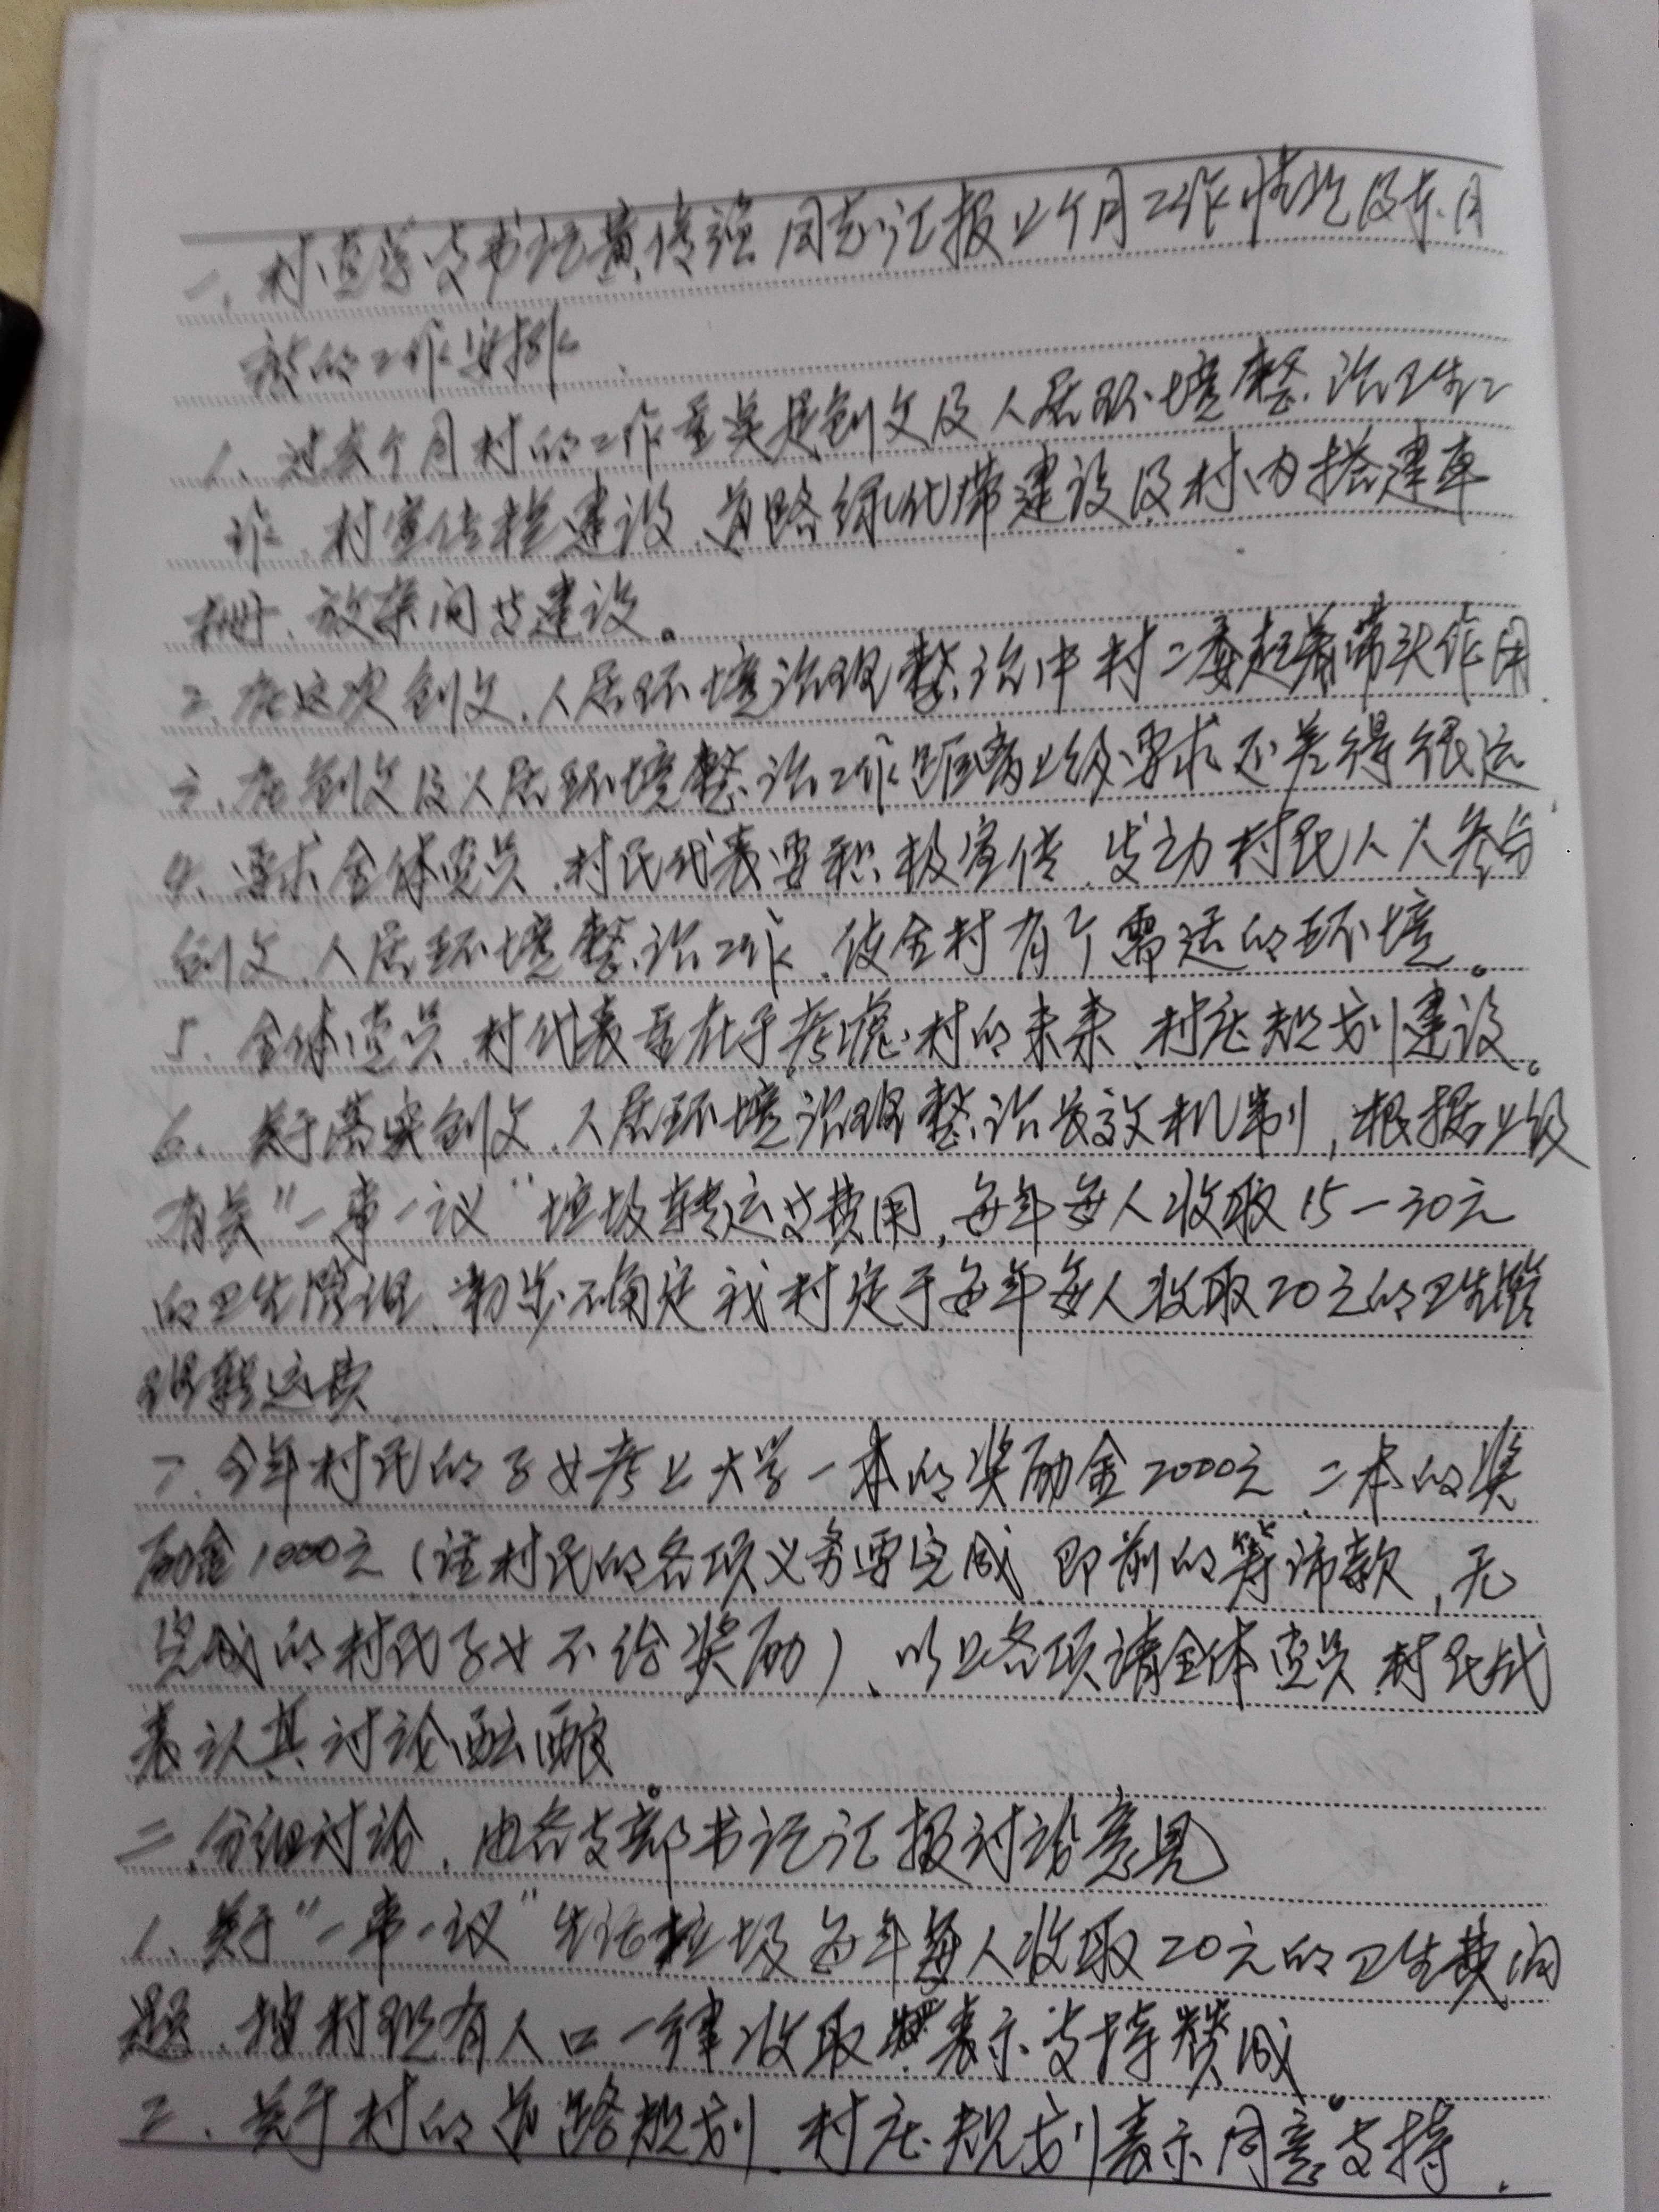 一、村党总支书记黄传强同志汇报上个月工作情况及本月
的工作安排.
1、过去个月村的工作重点是创文及人居环境整治卫生工
作、村宣传栏建设、道路绿化带建设及村内搭建车
棚、建设。
2、在这次创文、人居环境治理整治中村二委起着带头作用.
3、在创文及人居环境整治工作距离上级要求还差得很远
4、要求全体党员、村民代表要积极宣传、发动村民人人参与
创文、人居环境整治工作、使全村有个舒适的环境。
5、全体党员、村代表重在于考虑村的未来、村庄规划建设。
6、关于落实创文、人居环境治理整治长效机制，根据上级
有关"一事一议"垃圾转运费用，每年每人收取15-30元
的卫生管理、初步确定我村定于每年每人收取20元的卫生管
理转运费
7、今年村民的子女考上大学一本的奖励金2000元、二本的奖
励金1000元（该村民的各项义务要完成、即前的筹款，无
完成的村民子女不给奖励）、以上各项请全体党员、村民代
表认真讨论酝酿。
二、分组讨论、由各支部书记汇报讨论意见
1、关于"一事一议"生活垃圾每年每人收取20元的卫生费问
题、按村现有人口一律收取表示支持赞成。
2、关于村的道路规划、村庄规划表示同意支持.